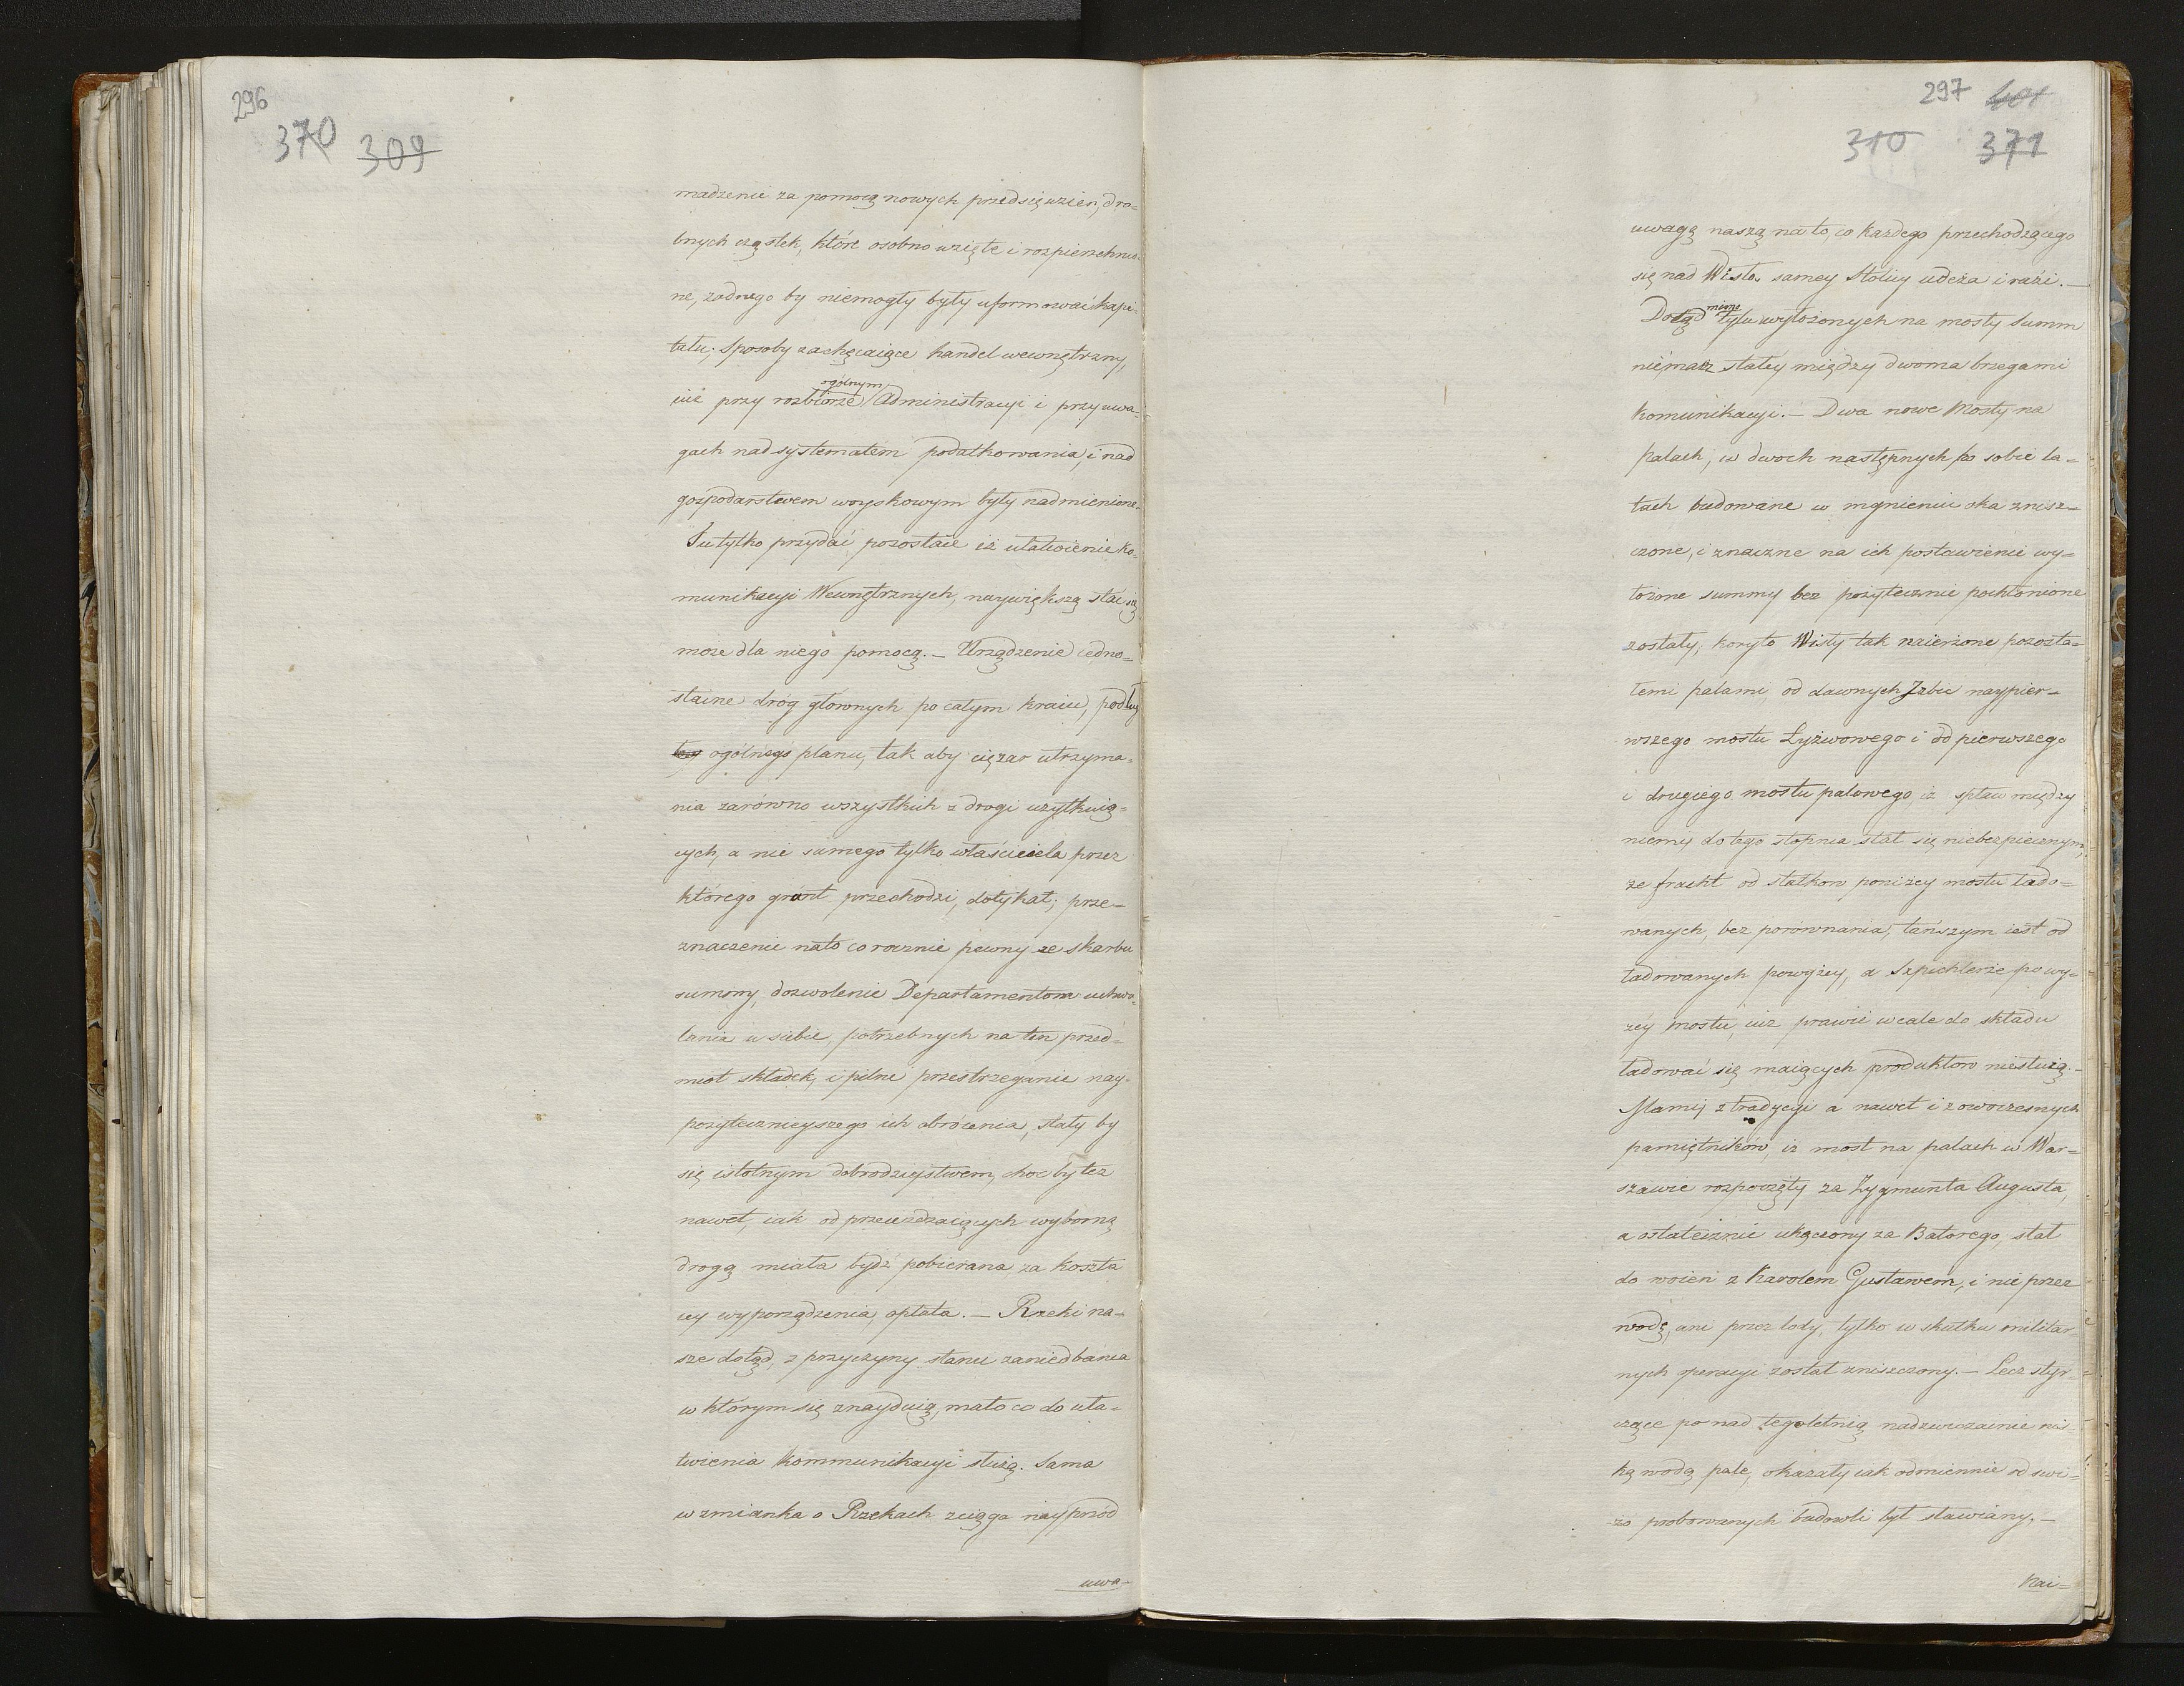 296
370 309
madzenie za pomocą nowych przedsięwzien, dro=
bnych cząstek, które osobno wzięte i rozpierzchnio=
ne, żadnego by niemogły były uformować kapi=
tału; sposoby zachęcaiące handel wewnętrzny,
iuż przy rozbiorze ogólnym Administracyi i przy uwa=
gach nad systematem podatkowania, i nad
gospodarstwem woyskowym były nadmienione.
Tu tylko przydać pozostaie iż ułatwienie ko=
munikacyi Wewnętrznych, naywiększą stać się
może dla niego pomocą. — Urządzenie iedno=
staine dróg głownych po całym kraiu, podług
ogólnego planu, tak aby ciężar utrzyma=
nia zarówno wszystkich z drogi użytkuią=
cych, a nie samego tylko właściciela przez
którego grunt przechodzi, dotykał; prze=
znaczenie na to corocznie pewny ze skarbu
summy, dozwolenie Departamentom uchwa=
lania u siebie, potrzebnych na ten przed=
miot składek, i pilne przestrzeganie nay=
pożytecznieyszego ich obrócenia, stały by
się istotnym dobrodzieystwem, choć by też
nawet, iak od przeieżdżaiących wyborną
drogą miała bydź pobierana za koszta
iey wyporządzenia, opłata. — Rzeki na=
sze dotąd, z przyczyny stanu zaniedbania
w którym się znayduią, mało co do uła=
twienia kommunikacyi służą. Sama
wzmianka o Rzekach zciąga nayprzód
uwa=
297 401
310 371
uwagę naszą na to, co każdego przechodzącego
się nad Wisłą samey Stolicy udeża i razi. —
Dotąd mimo tylu wyłożonych na mosty Summ
niémasz stałey między dwoma brzegami
komunikacyi. — Dwa nowe Mosty na
palach, w dwoch następnych po sobie la=
tach budowane w mgnieniu oka znisz=
czone, i znaczne na ich postawienie wy=
łożone summy bez pożytecznie pochłonione
zostały; koryto Wisły tak naieżone pozosta=
łemi palami od dawnych Izbic naypier=
wszego mostu Łyżwowego i od pierwszego
i drugiego mostu palowego, iż spław między
niemy do tego stopnia stał się niebezpiecznym,
że fracht od statkow poniżey mostu łado=
wanych, bez porównania, tańszym iest od
ładowanych powyżey, a Szpichlerze powy=
żey mostu, iuż prawie wcale do składu
ładować się maiących produktow niesłużą. —
Mamy z tradycyi a nawet i zowoczesnych
pamiętników, iż most na palach w War=
szawie rozpoczęty za Zygmunta Augusta,
a ostatecznie ukączony za Batorego, stał
do woien z Karolem Gustawem, i nie przez
wodę, ani przez lody, tylko w skutku militar=
nych operacyi został zniszczony. — Lecz styr=
czące ponad tegoletnią nadzwiczainie niz=
ką wodą pale, okazały iak odmiennie od świ=
żo probowanych budowli był stawiany. —
Kai=